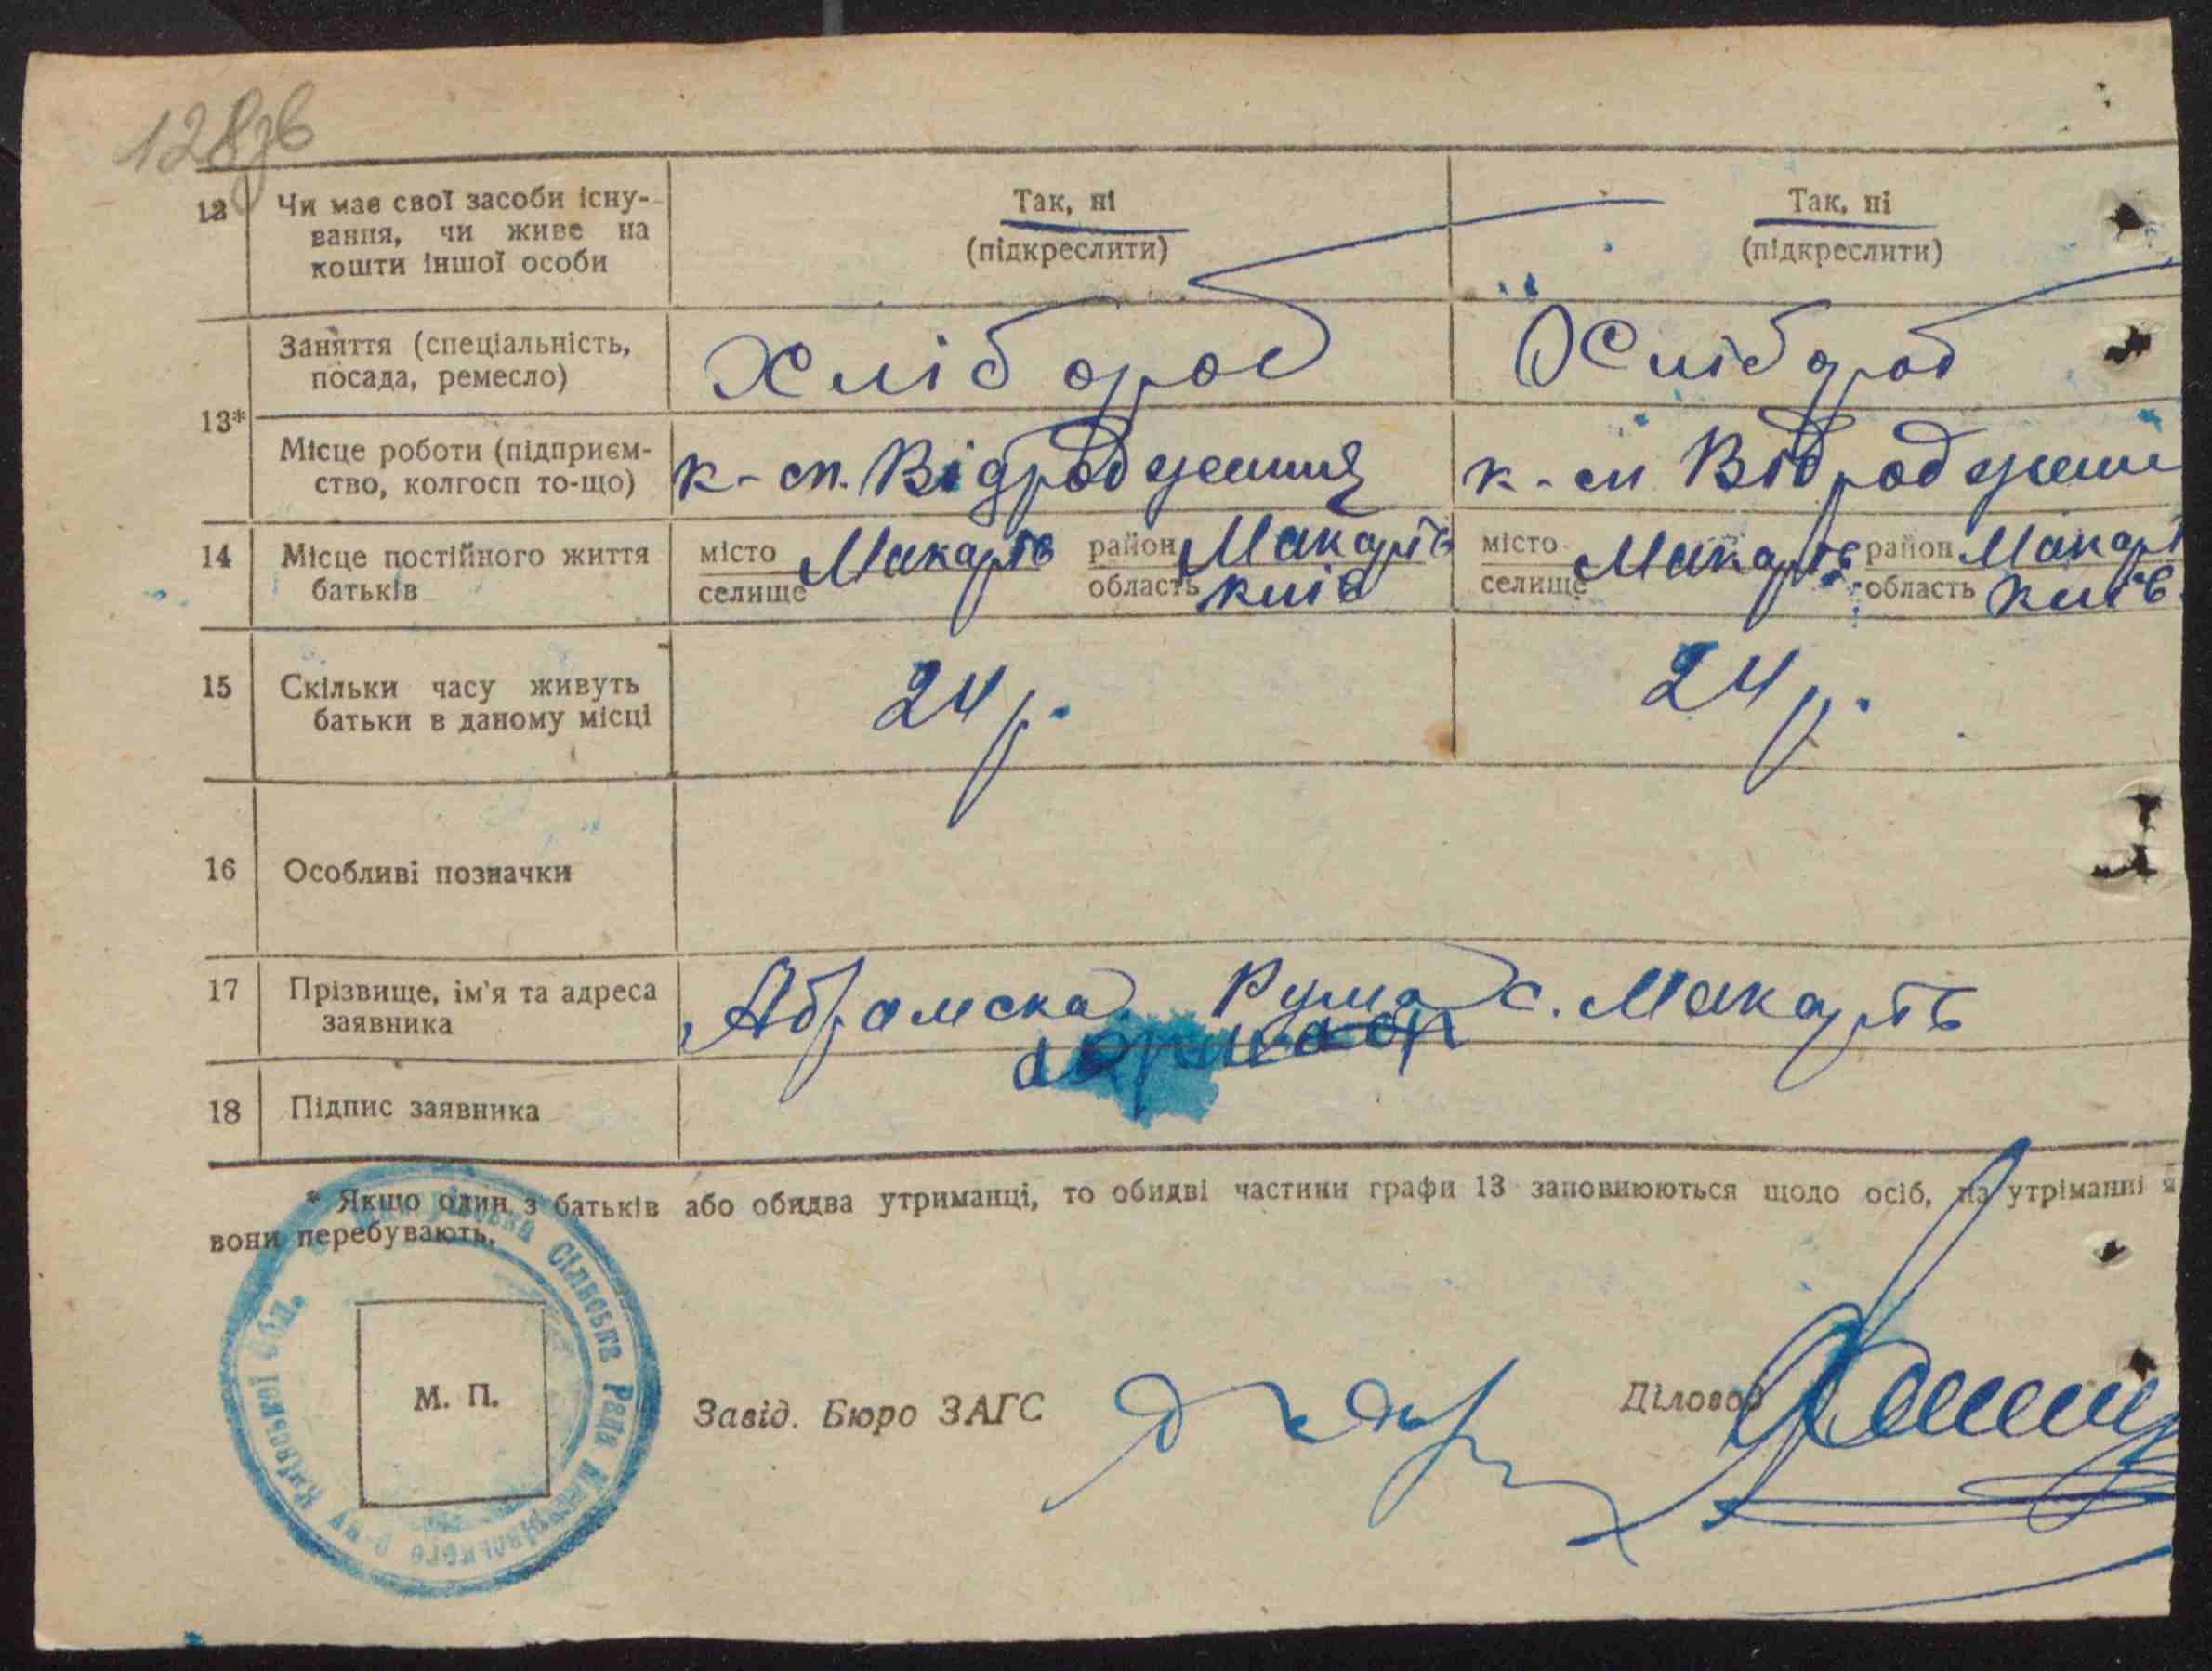 128зв
12 Чи має свої засоби існу- Так, ні Так, ні
вання, чи живе на (підкреслити) (підкреслити)
кошти іншої особи
Заняття (спеціальність, Хлібороб Хлібороб
посада, ремесло)
13*
Місце роботи (підприєм- к-сп. Відродження к-сп Відроджени
ство, колгосп то-що)
14 Місце постійного життя місто Макарів район Макарів місто Макарів район Макарі
батьків селище область Київ селище область Київ.
15 Скільки часу живуть 24 р. 24 р.
батьки в даному місці
16 Особливі позначки
17 Прізвище, ім'я та адреса Абрамска Рума с. Макарів
заявника
18 Підпис заявника
* Якщо один з батьків або обидва утриманці, то обидві частини графи 13 заповнюються щодо осіб, на утріманні я
вони перебувають.
Сільська Рада Макарівського р-ну Київської Обл.
М. П.
Завід. Бюро ЗАГС Діловод